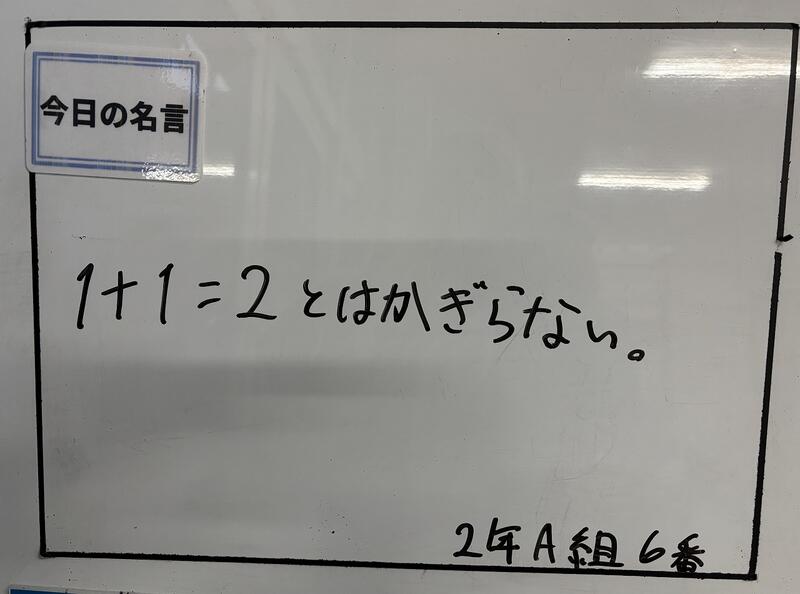 今日の名言
1+1=2とはかぎらない。
2年A組6番